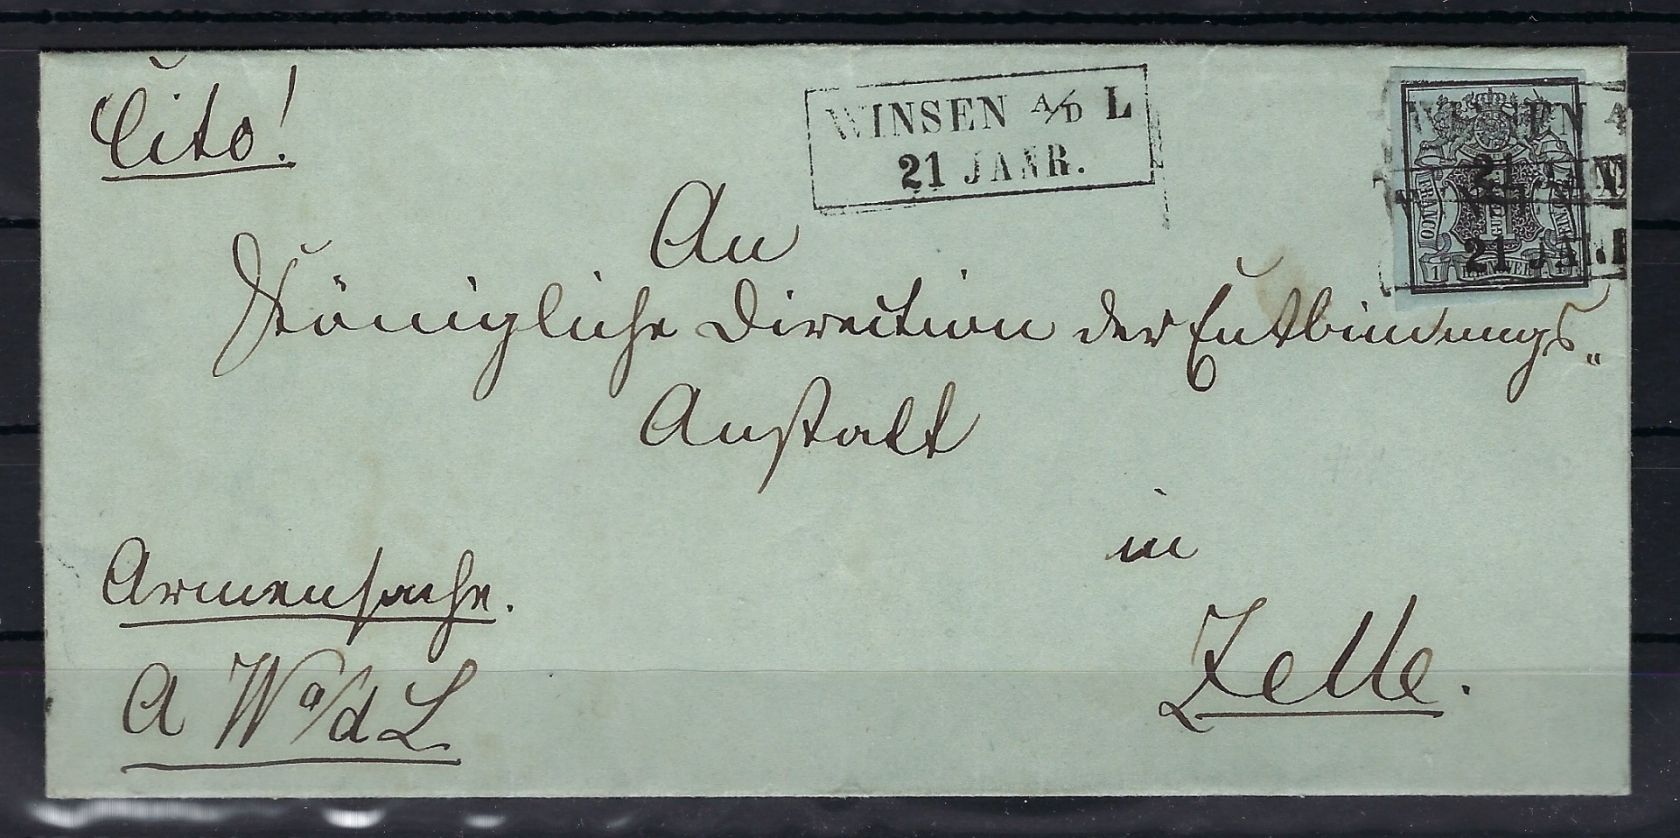 Cito!
WINSEN A/D L
21 JANR.
WINSEN A
21 JAN
21 JAN
HANNOVER
1
An
Königliche Direction der Entbindungs„
Anstalt
in
Zelle.
Armensache.
A W a/d L